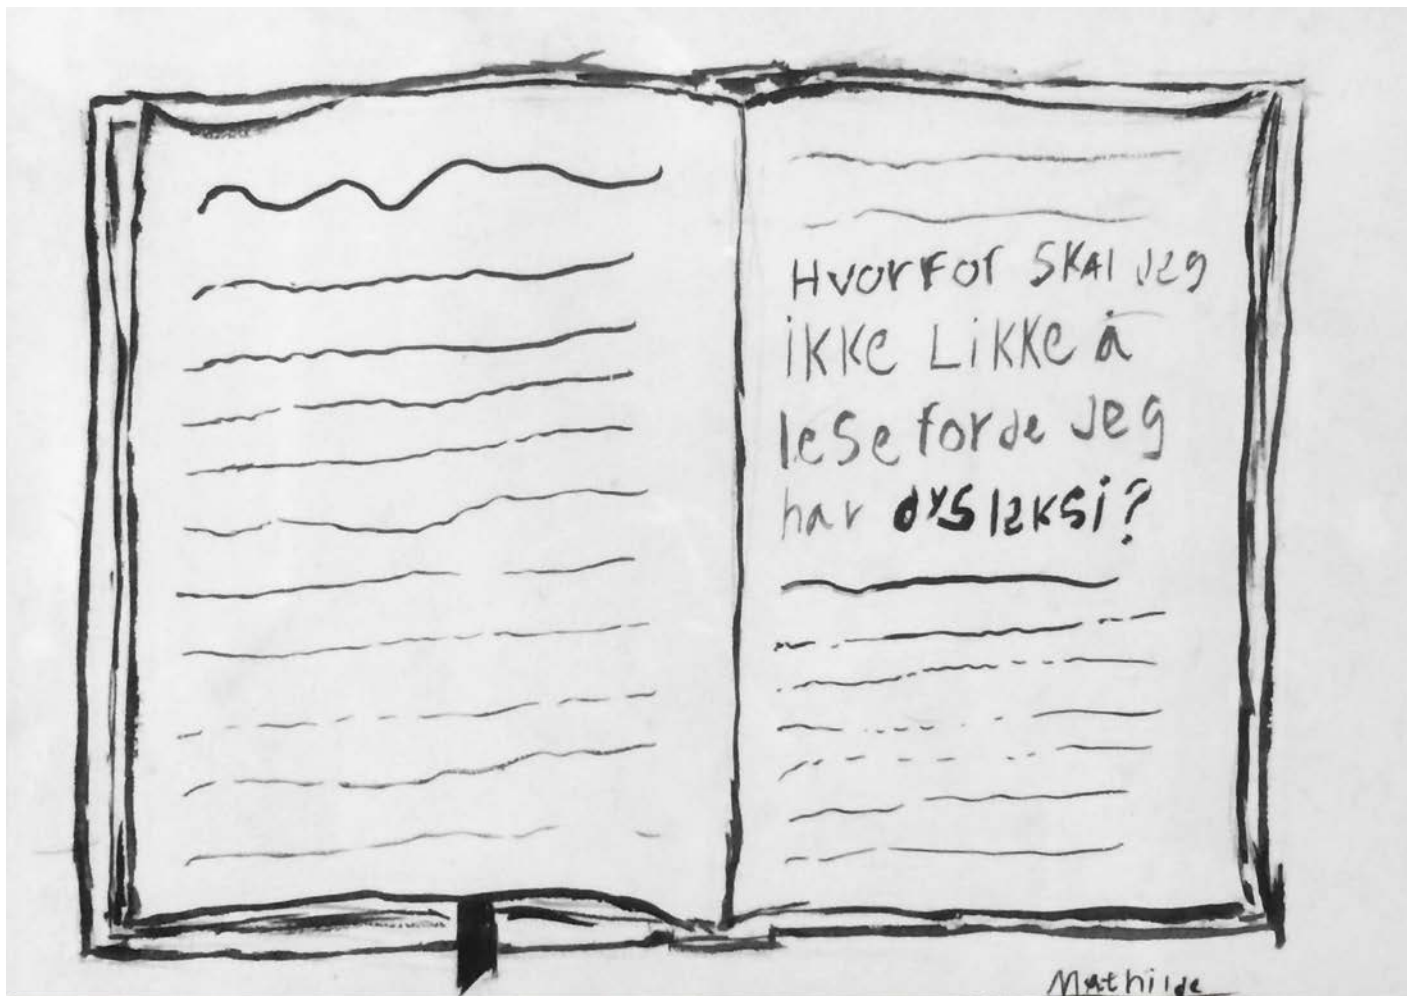 HvorFor SKAl jeg
iKKe LiKKe å
leSe forde jeg
har dySleKSi?
Mathilde